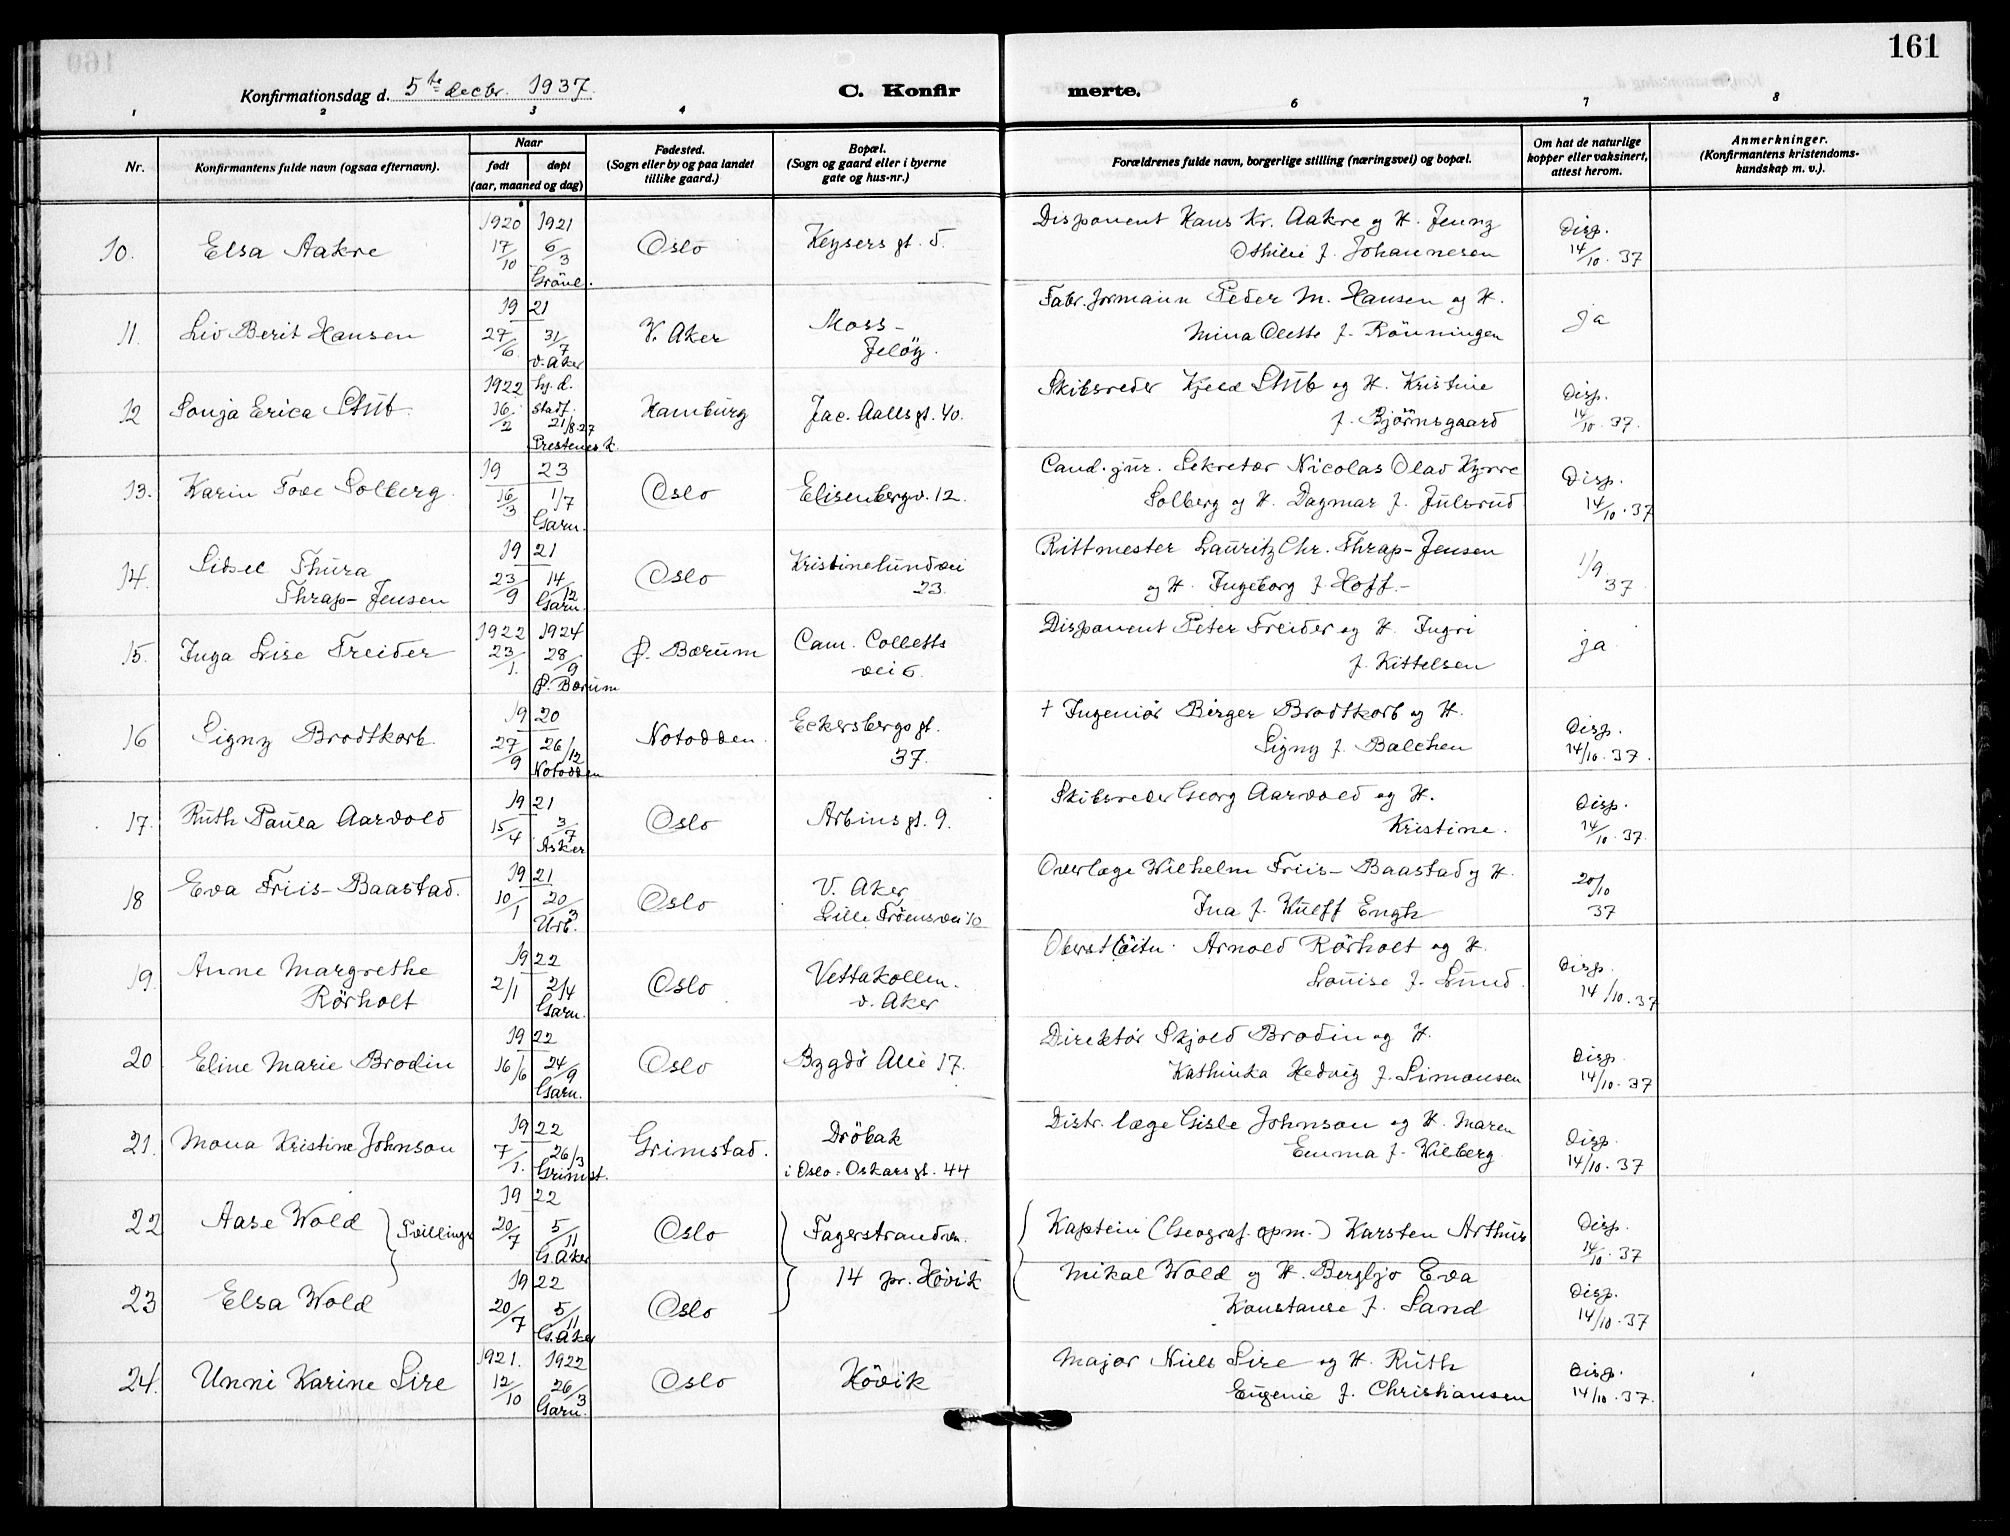 161
Konfirmationsdag d. 5te decbr. 1937.
C. Konfirmerte.
1 2 3 4 6 7 8
Nr.
Konfirmantens fulde navn (ogsaa efternavn).
Naar
født
døpt
(aar, maaned og dag)
Fødested.
(Sogn eller by og paa landet
tillike gaard.)
Bopæl.
(Sogn og gaard eller i byerne
gate og hus-nr.)
Forældrenes fulde navn, borgerlige stilling (næringsvei) og bopæl.
Om hat de naturlige
kopper eller vaksinert,
attest herom.
Anmerkninger.
(Konfirmantens kristendoms-
kundskap m. v.).
10. Elsa Aakre
1920 17/10
1921 6/3 Grönl.
Oslo
Keysers gt. 5.
Disponent Hans Kr. Aakre og H. Jenny
Othilie f. Johannesen
Disp.
14/10. 37
11. Liv Berit Hansen
1921
27/6
31/7 V. Aker
V. Aker
Moss-
Jeløy.
Fabr. formann Peder M. Hansen og H.
Mina Olette f. Rönningen
ja
12 Sonja Erica Stub.
1922 16/2
hj. d. stadf. 21/8.27
Prestenes k.
Hamburg
Jac. Aalls gt. 40.
Skibsreder Kjeld Stub og H. Kristine
f. Björnsgaard
Disp.
14/10. 37.
13. Karin Tove Solberg.
1923
16/3
1/7 Garn.
Oslo
Elisenbergv. 12.
Cand. jur. Sekretær Nicolas Olav Kyrre
Solberg og H. Dagmar f. Julsrud
Disp.
14/10. 37
14. Sidsel Thura
Thrap-Jensen
1921
23/9
14/12 Garn.
Oslo
Kristinelundvei
23.
Rittmester Lauritz Chr. Thrap-Jensen
og H. Ingeborg f. Hoff.-
1/9
37
15. Inga Lise Treider
1922 23/1.
1924 28/9 Ø. Bærum
Ø. Bærum
Cam. Colletts
vei 6.
Disponent Peter Treider og H. Ingri
f. Kittelsen
ja
16 Signy Brodtkorb.
1920
27/9
26/12 Notodden
Notodden.
Eckersbergs gt.
37.
† Ingeniör Birger Brodtkorb og H.
Signy f. Balchen
Disp.
14/10. 37.
17. Ruth Paula Aarvold
1921
15/4
3/7 Asker
Oslo
Arbins gt. 9.
Skibsreder Georg Aarvold og H.
Kristine.
Disp.
14/10. 37.
18 Eva Friis-Baastad.
1921
10/1
20/3 Urb.
Oslo
V. Aker
Lille Frøensvei 10
Overlæge Wilhelm Friis-Baastad og H.
Ina f. Wulff Engh
20/10
37
19. Anne Margrethe
Rörholt
1922
2/1
2/4 Garn.
Oslo
Vettakollen.
V. Aker
Oberstlöitn. Arnold Rörholt og H.
Louise f. Lund.
Disp.
14/10. 37
20. Eline Marie Brodin
1922
16/6
24/9 Garn.
Oslo
Bygdö Alle 17.
Direktör Skjold Brodin og H.
Kathinka Hedvig f. Simonsen
Disp.
14/10. 37
21. Mona Kristine Johnson
1922
7/1.
26/3 Grimst.
Grimstad.
Dröbak
i Oslo: Oskars gt. 44
Distr. læge Gisle Johnson og H. Maren
Emma f. Wilberg.
Disp.
14/10. 37
22 Aase Wold } Tvillinger
1922
20/7
5/11 G. Aker
Oslo
Fagerstrandvn.
14 pr. Hövik
Kaptein (Geograf. opm.) Karsten Arthur
Mikal Wold og H. Bergljo Eva
Konstanse f. Sand
Disp.
14/10. 37
23 Elsa Wold
1922
20/7
5/11 G. Aker
Oslo
Disp.
14/10. 37
24. Unni Karine Lire
1921. 12/10
1922 26/3 Garn.
Oslo
Hövik
Major Niels Lire og H. Ruth
Eugenie f. Christiansen
Disp.
14/10. 37.